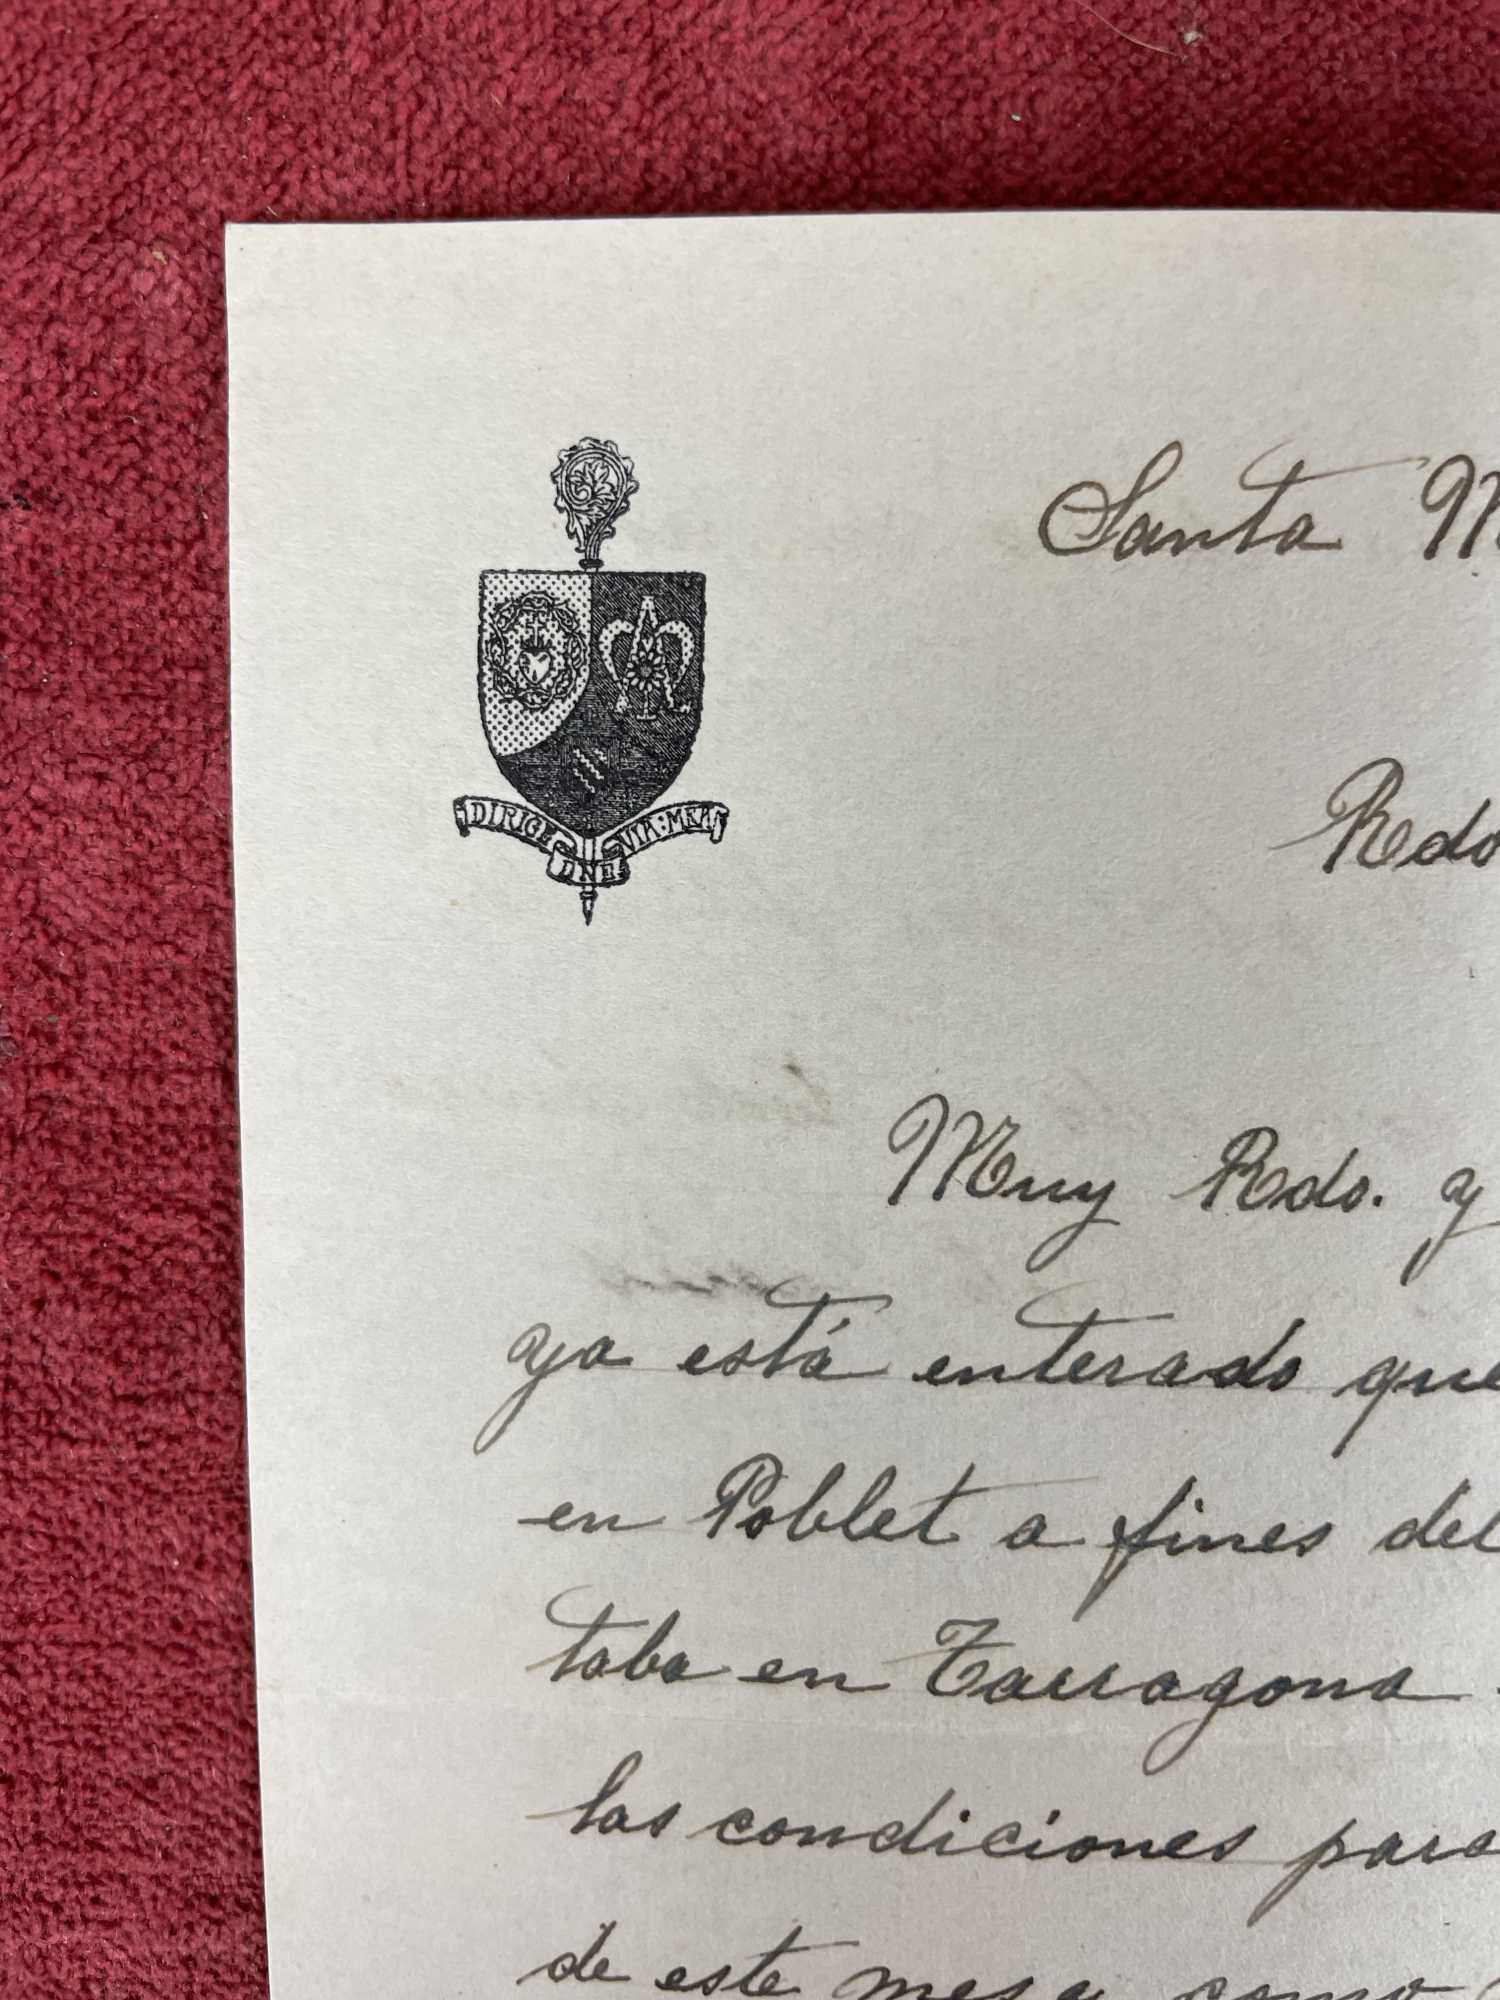 Santa M
DIRIGE DNE VIA: MEA
Rdo
Muy Rdo. y
ya está enterado que
en Poblet a fines del
taba en Tarragona
las condiciones para
de este mes y como